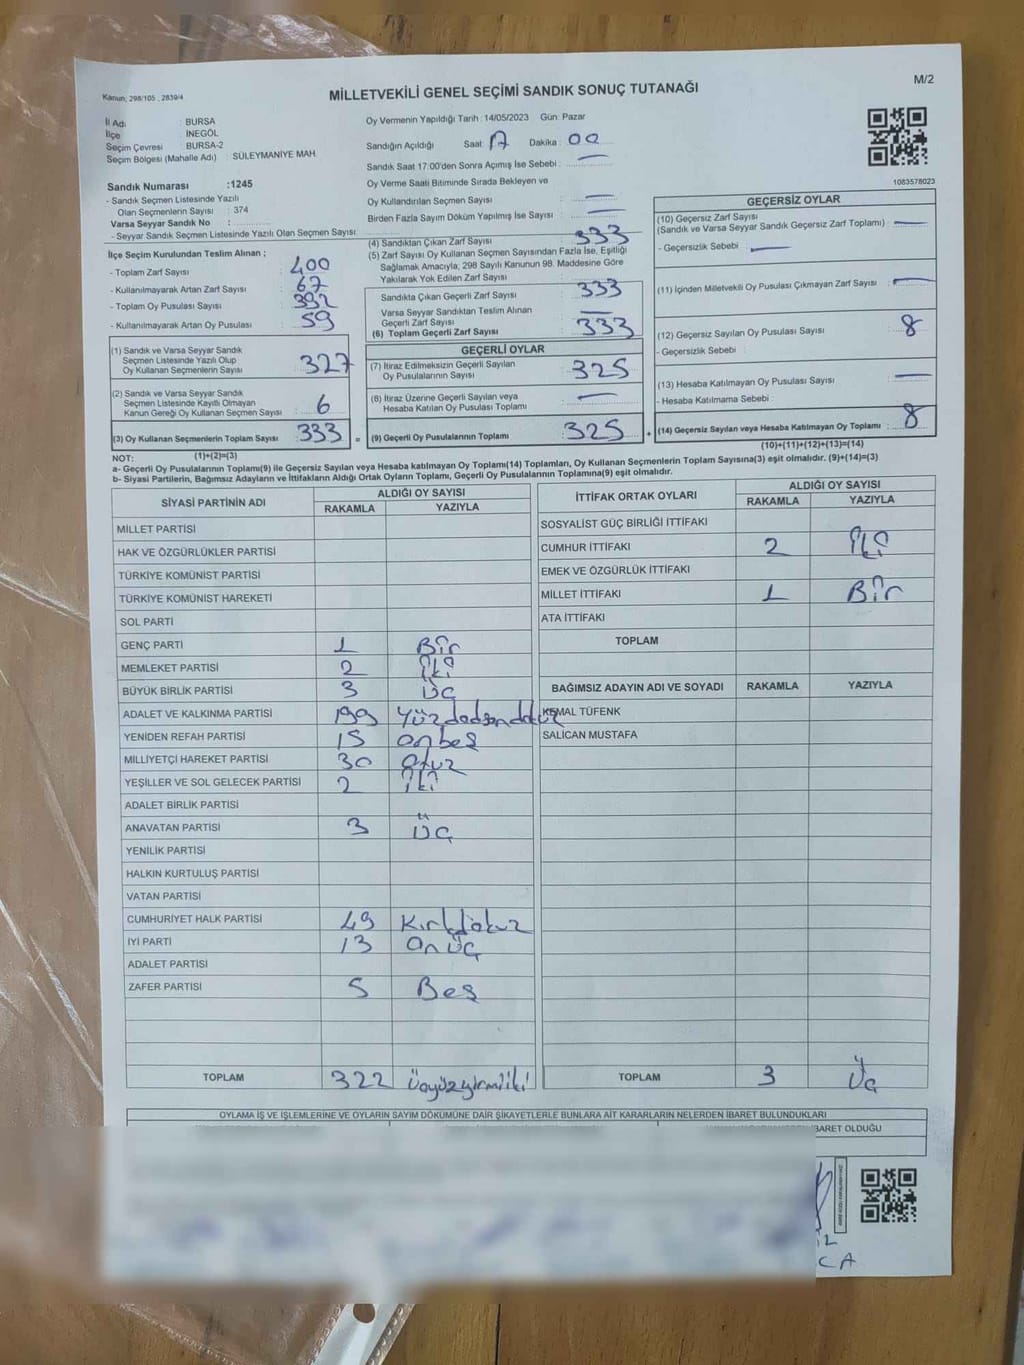 M/2
Kanun; 298/105 , 2839/4
MİLLETVEKİLİ GENEL SEÇİMİ SANDIK SONUÇ TUTANAĞI
İl Adı : BURSA
İlçe : İNEGÖL
Seçim Çevresi : BURSA-2
Seçim Bölgesi (Mahalle Adı) : SÜLEYMANİYE MAH.
Sandık Numarası :1245
- Sandık Seçmen Listesinde Yazılı
Olan Seçmenlerin Sayısı : 374
Varsa Seyyar Sandık No :
- Seyyar Sandık Seçmen Listesinde Yazılı Olan Seçmen Sayısı:
Oy Vermenin Yapıldığı Tarih : 14/05/2023 Gün: Pazar
Sandığın Açıldığı Saat: 17 Dakika : 00
Sandık Saat 17:00'den Sonra Açımış İse Sebebi : —
Oy Verme Saati Bitiminde Sırada Bekleyen ve
Oy Kullandırılan Seçmen Sayısı : —
Birden Fazla Sayım Döküm Yapılmış İse Sayısı : —
1083578023
İlçe Seçim Kurulundan Teslim Alınan ;
- Toplam Zarf Sayısı : 400
- Kullanılmayarak Artan Zarf Sayısı : 67
- Toplam Oy Pusulası Sayısı : 392
- Kullanılmayarak Artan Oy Pusulası : 59
(1) Sandık ve Varsa Seyyar Sandık
Seçmen Listesinde Yazılı Olup
Oy Kullanan Seçmenlerin Sayısı : 327
(2) Sandık ve Varsa Seyyar Sandık
Seçmen Listesinde Kayıtlı Olmayan
Kanun Gereği Oy Kullanan Seçmen Sayısı : 6
(3) Oy Kullanan Seçmenlerin Toplam Sayısı : 333 =
(1)+(2)=(3)
(4) Sandıktan Çıkan Zarf Sayısı : 333
(5) Zarf Sayısı Oy Kullanan Seçmen Sayısından Fazla İse, Eşitliği
Sağlamak Amacıyla; 298 Sayılı Kanunun 98. Maddesine Göre
Yakılarak Yok Edilen Zarf Sayısı :
Sandıkta Çıkan Geçerli Zarf Sayısı : 333
Varsa Seyyar Sandıktan Teslim Alınan
Geçerli Zarf Sayısı : —
(6) Toplam Geçerli Zarf Sayısı : 333
GEÇERLİ OYLAR
(7) İtiraz Edilmeksizin Geçerli Sayılan
Oy Pusulalarının Sayısı : 325
(8) İtiraz Üzerine Geçerli Sayılan veya
Hesaba Katılan Oy Pusulası Toplamı : —
(9) Geçerli Oy Pusulalarının Toplamı : 325 +
GEÇERSİZ OYLAR
(10) Geçersiz Zarf Sayısı
(Sandık ve Varsa Seyyar Sandık Geçersiz Zarf Toplamı) : —
- Geçersizlik Sebebi : —
(11) İçinden Milletvekili Oy Pusulası Çıkmayan Zarf Sayısı : —
(12) Geçersiz Sayılan Oy Pusulası Sayısı : 8
- Geçersizlik Sebebi :
(13) Hesaba Katılmayan Oy Pusulası Sayısı : —
- Hesaba Katılmama Sebebi :
(14) Geçersiz Sayılan veya Hesaba Katılmayan Oy Toplamı : 8
(10)+(11)+(12)+(13)=(14)
NOT:
a- Geçerli Oy Pusulalarının Toplamı(9) ile Geçersiz Sayılan veya Hesaba katılmayan Oy Toplamı(14) Toplamları, Oy Kullanan Seçmenlerin Toplam Sayısına(3) eşit olmalıdır. (9)+(14)=(3)
b- Siyasi Partilerin, Bağımsız Adayların ve İttifakların Aldığı Ortak Oyların Toplamı, Geçerli Oy Pusulalarının Toplamına(9) eşit olmalıdır.
SİYASİ PARTİNİN ADI ALDIĞI OY SAYISI
RAKAMLA YAZIYLA
MİLLET PARTİSİ
HAK VE ÖZGÜRLÜKLER PARTİSİ
TÜRKİYE KOMÜNİST PARTİSİ
TÜRKİYE KOMÜNİST HAREKETİ
SOL PARTİ
GENÇ PARTİ 1 Bir
MEMLEKET PARTİSİ 2 İki
BÜYÜK BİRLİK PARTİSİ 3 Üç
ADALET VE KALKINMA PARTİSİ 199
YENİDEN REFAH PARTİSİ 15 onbeş
MİLLİYETÇİ HAREKET PARTİSİ 30 otuz
YEŞİLLER VE SOL GELECEK PARTİSİ 2 İki
ADALET BİRLİK PARTİSİ
ANAVATAN PARTİSİ 3 Üç
YENİLİK PARTİSİ
HALKIN KURTULUŞ PARTİSİ
VATAN PARTİSİ
CUMHURİYET HALK PARTİSİ 49 Kırkdokuz
İYİ PARTİ 13 on üç
ADALET PARTİSİ
ZAFER PARTİSİ 5 Beş
TOPLAM 322 Üçyüzyirmiiki
İTTİFAK ORTAK OYLARI ALDIĞI OY SAYISI
RAKAMLA YAZIYLA
SOSYALİST GÜÇ BİRLİĞİ İTTİFAKI
CUMHUR İTTİFAKI 2 İki
EMEK VE ÖZGÜRLÜK İTTİFAKI
MİLLET İTTİFAKI 1 Bir
ATA İTTİFAKI
TOPLAM
BAĞIMSIZ ADAYIN ADI VE SOYADI RAKAMLA YAZIYLA
KEMAL TÜFENK
SALİCAN MUSTAFA
TOPLAM 3 Üç
OYLAMA İŞ VE İŞLEMLERİNE VE OYLARIN SAYIM DÖKÜMÜNE DAİR ŞİKAYETLERLE BUNLARA AİT KARARLARIN NELERDEN İBARET BULUNDUKLARI
İBARET OLDUĞU